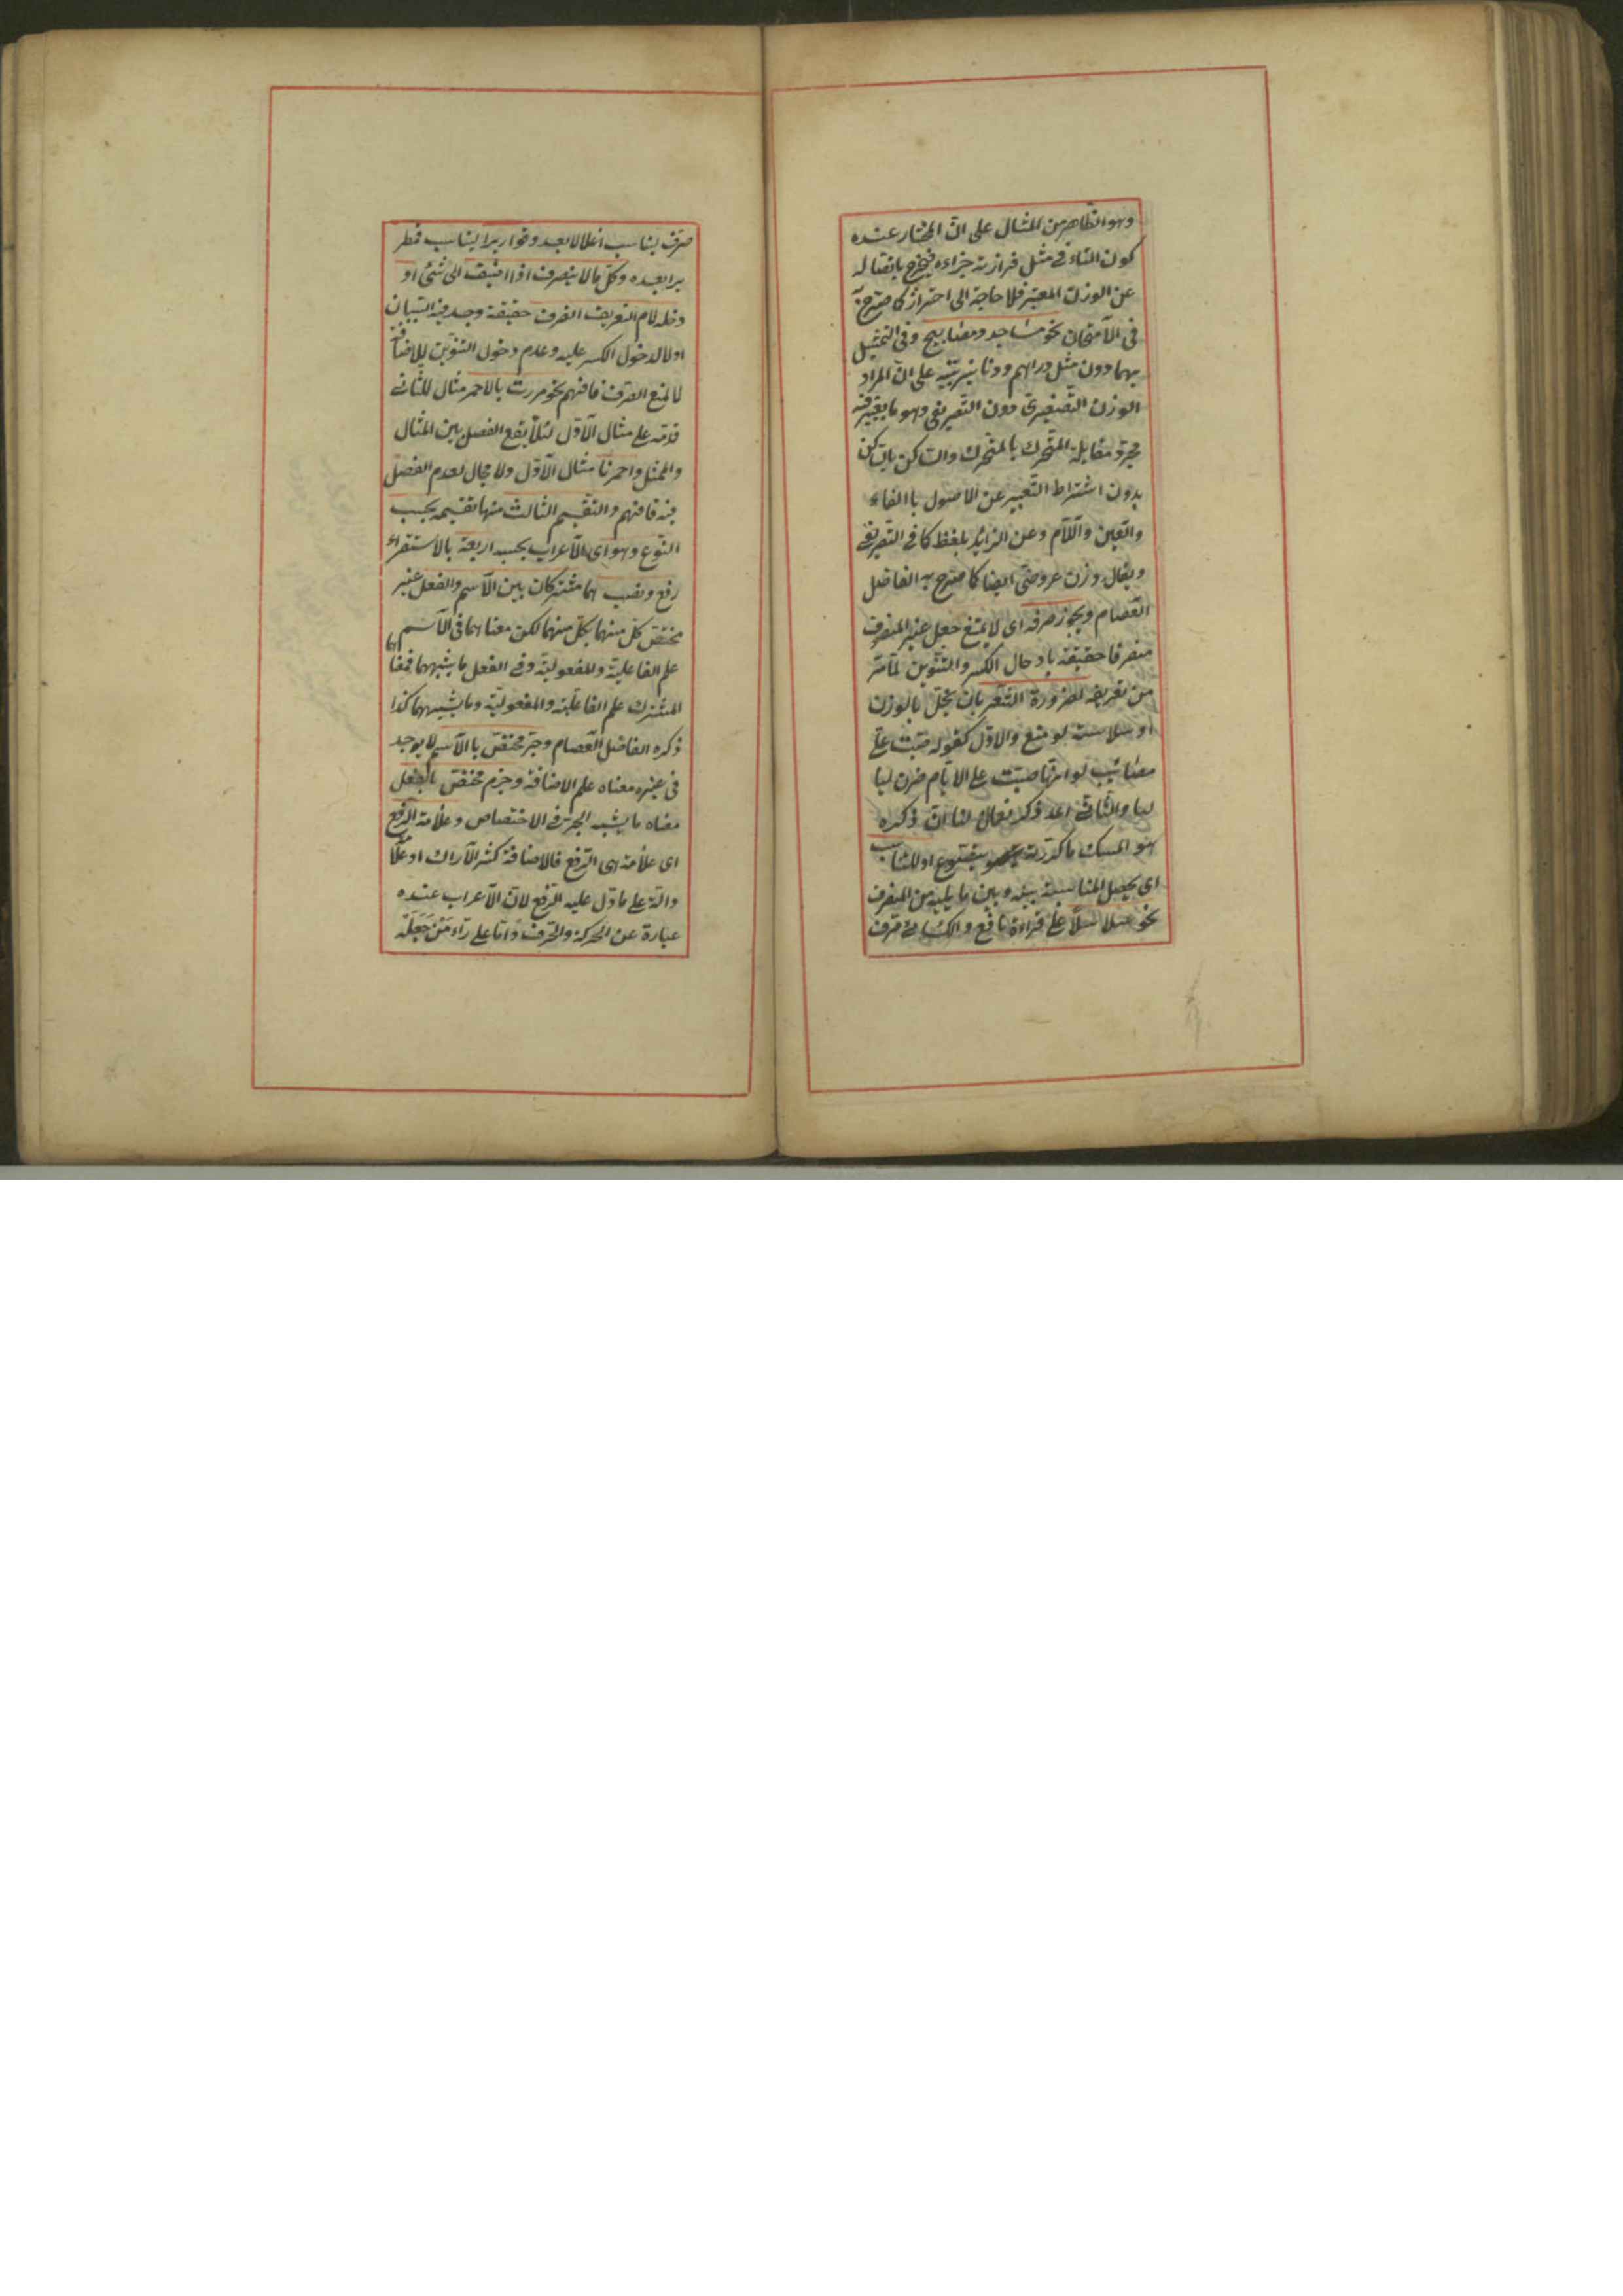 وهو الظاهر من المثال على ان المختار عنده
كون التاء في مثل فرازنة جزاءه فيخرج باتصاله
عن الوزن المعتبر فلا حاجة الى احتراز كما صرح به
في الامتحان نحو مساجد ومصابيح وفي التمثيل
بهما دون مثل دراهم ودنانير تنبيه على ان المراد
الوزن التصغيرى دون التصريفى وهو ما يعتبر فيه
مجرد مقابلة المتحرك بالمتحرك والساكن بالساكن
بدون اشتراط التعبير عن الاصول باالفاء
والعين واللام وعن الزائد بلفظ كما في التصريفى
ويقال وزن عروضى ايضا كما صرح به الفاضل
العصام ويجوز صرفه اى لا يمتنع جعل غير المنصرف
منصرفا حقيقة بادخال الكسر والتنوين لما مر
من تعريفه لضرورة الشعر بان يختل بالوزن
او سلاسته لو منع والاول كقوله صبت على
مصائب لو انها صبت على الايام صرن ليا
ليا والثانى اعد ذكر نعمان لنا ان ذكره
هو المسك ما كررته يتضوع او للتناسب
اى يحصل المناسبة بينه وبين ما يليه من المنصرف
نحو سلاسلا على قراءة نافع والكسائى صرف
صرف ليناسب اغلالا بعده وقواريرا ليناسب قطر
يرا بعده وكل ما لا ينصرف اذا اضيف الى شئ او
دخله لام التعريف انصرف حقيقة وجد فيه السببان
اولا لدخول الكسر عليه وعدم دخول التنوين للاضافة
لا لمنع الصرف فافهم نحو مررت بالاحمر مثال للثانى
قدمه على مثال الاول لئلا يقع الفصل بين المثال
والممثل واحمرنا مثال الاول ولا مجال لعدم الفصل
فيه فافهم والتقسيم الثالث منها تقسيمه بحسب
النوع وهو اى الاعراب بحسبه اربعة بالاستقراء
رفع ونصب هما مشتركان بين الاسم والفعل غير
مختص كل منهما بكل منهما لكن معناهما في الاسم
علم الفاعلية والمفعولية وفي الفعل ما يشبههما فمعناهما
المشترك علم الفاعلية والمفعولية وما يشبههما كذا
ذكره الفاضل العصام وجر مختص باالاسم لا يوجد
في غيره معناه علم الاضافة وجزم مختص بالفعل
معناه ما يشبه الجر في الاختصاص وعلامة الرفع
اى علامة هى الرفع فالاضافة كشجر الاراك او علامة
دالة على ما دل عليه الرفع لان الاعراب عنده
عبارة عن الحركة والحرف واما على راء من جعله